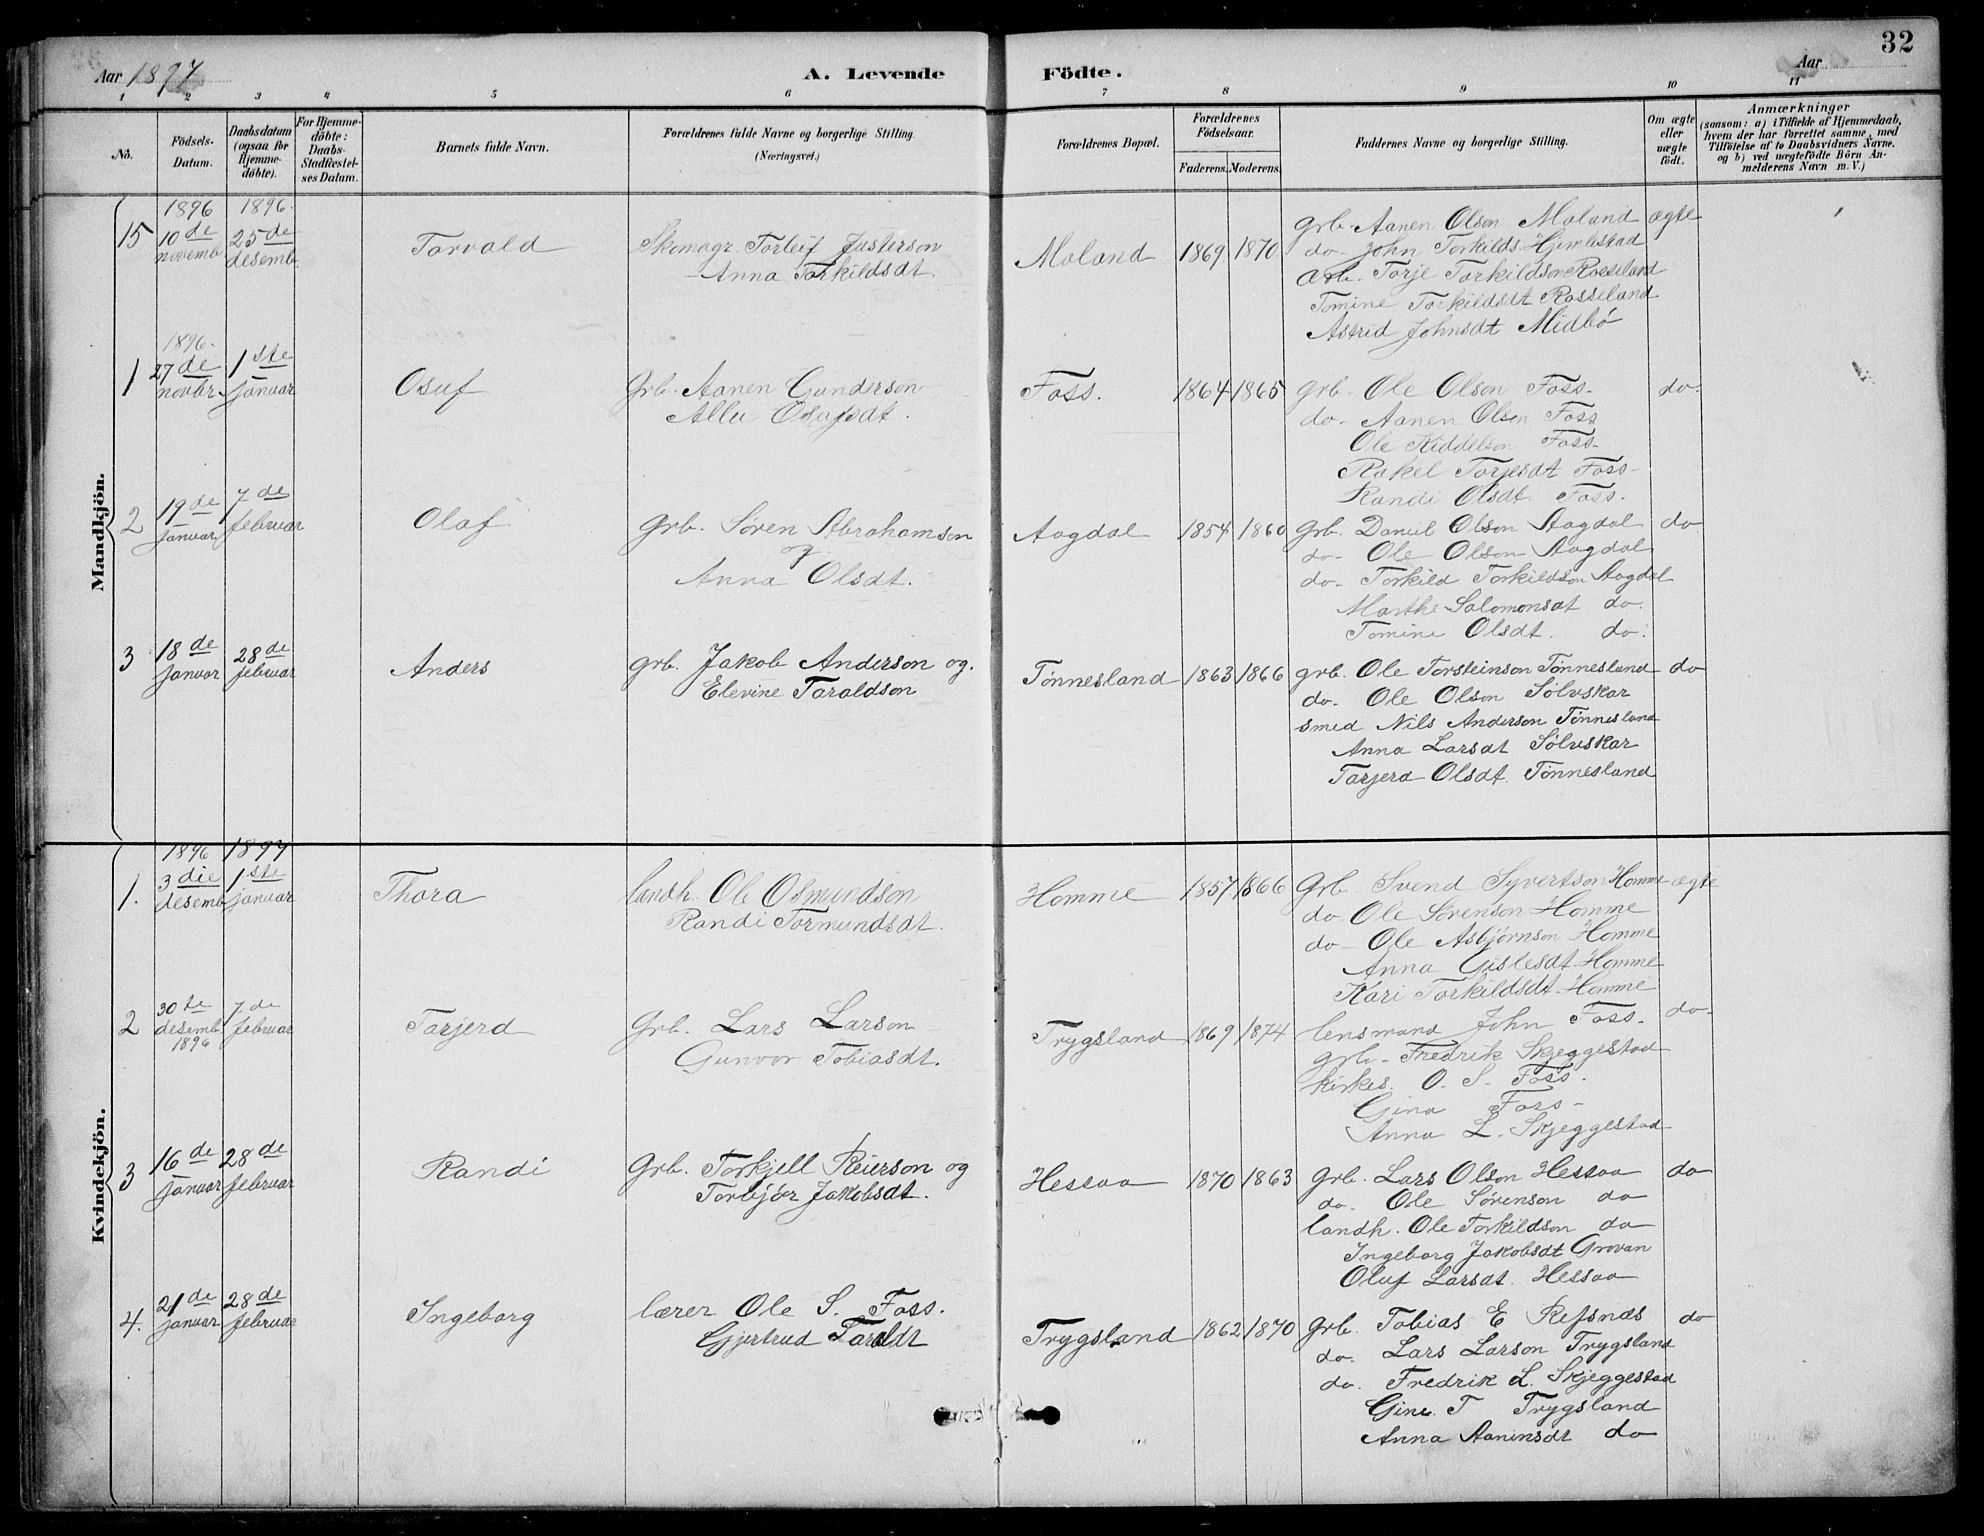 32
Aar 1897
A. Levende Födte.
Aar
1 2 3 4 5 6 7 8 9 10 11
No.
Födsels-Datum.
Daabsdatum (ogsaa for Hjemme-döbte).
For Hjemme-döbte: Daabs-Stadfæstel-ses Datum.
Barnets fulde Navn.
Forældrenes fulde Navne og borgerlige Stilling. (Næringsvei.)
Forældrenes Bopæl.
Forældrenes Födselsaar.
Faderens. Moderens.
Faddernes Navne og borgerlige Stilling.
Om ægte eller uægte födt.
Anmærkninger
(saasom: a) i Tilfælde af Hjemmedaab, hvem der har forrettet samme, med Tilföielse af to Daabsvidners Navne, og b) ved uægtefödte Börn An-melderens Navn m. V.)
Mandkjön.
15
1896 10de novemb
1896. 25de desemb.
Torvald
Skomagr. Torleif Justerson
Anna Torkildsdt.
Moland
1869 1870
Grb. Aanen Olson Moland
do. John Torkilds. Hjemlestad
Arb. Torje Torkildson Rosseland
Tomine Torkildsdt Rosseland
Astrid Johnsdt Midbö
ægte
1
1896. 27de novbr.
1ste januar
Osuf
Grb. Aanen Gunderson
Allu Osufsdt.
Foss.
1864 1865
Grb. Ole Olson Foss.
do. Aanen Olson Foss
Ole Kiddelson Foss.
Rakel Torjesdt Foss
Randi Olsdt. Foss.
do.
2
19de januar
7de februar
Olaf
Grb. Sören Abrahamson
Anna Olsdt.
Aagdal
1854 1860
Grb. Daniel Olson Aagdal
do. Ole Olson Aagdal
do. Torkild Torkildson Aagdal
Marthe Salomonsdt do.
Tomine Olsdt. do.
do
3
18de januar
28de februar
Anders
grb. Jakob Anderson og.
Elevine Taraldson
Tönnesland
1863 1866
grb. Ole Torsteinson Tönnesland
do. Ole Olson Sölvskar
smed Nils Anderson Tönnesland
Anna Larsdt Sölvskar
Tarjerd Olsdt. Tönnesland
do
Kvindekjön.
1.
1896 3die desemb.
1897 1ste januar
Thora
landh. Ole Osmundson
Randi Tormundsdt.
Homme
1857 1866
Grb. Svend Syvertson Homme
do Ole Sörenson Homme
do Ole Asbjörnson Homme
Anna Gislesdt Homme
Kari Torkildsdt Homme
ægte
2
30te desemb. 1896
7de februar
Tarjerd
Grb. Lars Larson
Gunvor Tobiasdt.
Trygsland
1869 1874
lensmand John Foss.
grb. Fredrik Skjeggestad
kirkes. O. S. Foss.
Gina Foss
Anna L. Skjeggestad
do
3
16de januar
28de februar
Randi
Grb. Torkjell Reierson og
Torbjör Jakobsdt.
Hessaa
1870 1863
Grb. Lars Olson Hessaa
do. Ole Sörenson do
landh. Ole Torkildson do
Ingeborg Jakobsdt Grovan
Oluf Larsdt. Hessaa
do
4.
21de januar
28de februar
Ingeborg
lærer Ole S. Foss.
Gjertrud Taraldt
Trygsland
1862 1870
Grb. Tobias E Refsnæs
do. Lars Larson Trygsland
do. Fredrik L. Skjeggestad
Gine. T Trygsland
Anna Aaninsdt do
do